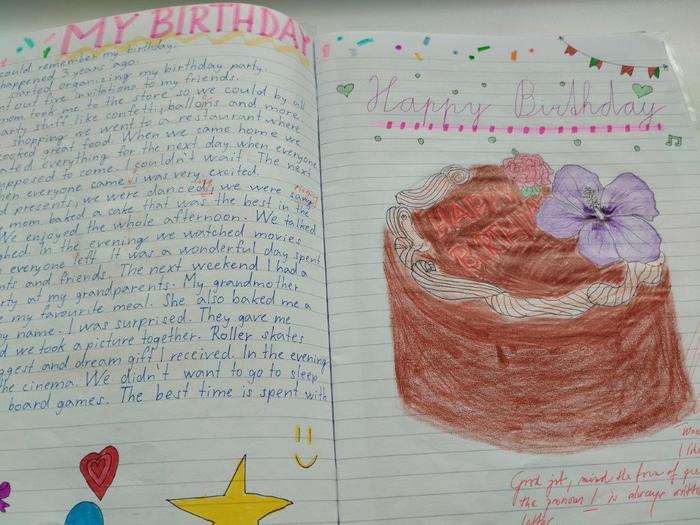 MY BIRTHDAY
could remember my birthday.
happened 3 years ago.
started organizing my birthday party.
out five invitations to my friends.
mom took me to the store so we could by all
party stuff like confetti, balloons and more.
shopping we went to a restaurant where
cooked great food. When we came home we
ated everything for the next day when everyone
upposed to come. I couldn't wait! The next
hen everyone came, I was very excited.
d presents, we were danced, we were sang
mom baked a cake that was the best in the
We enjoyed the whole afternoon. We talked
ghed. In the evening we watched movies
everyone left. It was a wonderful day spent
nts and friends. The next weekend I had a
rty at my grandparents. My grandmother
e my favourite meal. She also baked me a
y name. I was surprised. They gave me
d we took a picture together. Roller skates
ggest and dream gift I received. In the evening
the cinema. We didn't want to go to sleep
board games. The best time is spent with
Happy Birthday
HAPPY
BIRTH
I like
Good job, mind the form of
the pronoun I is always
letter